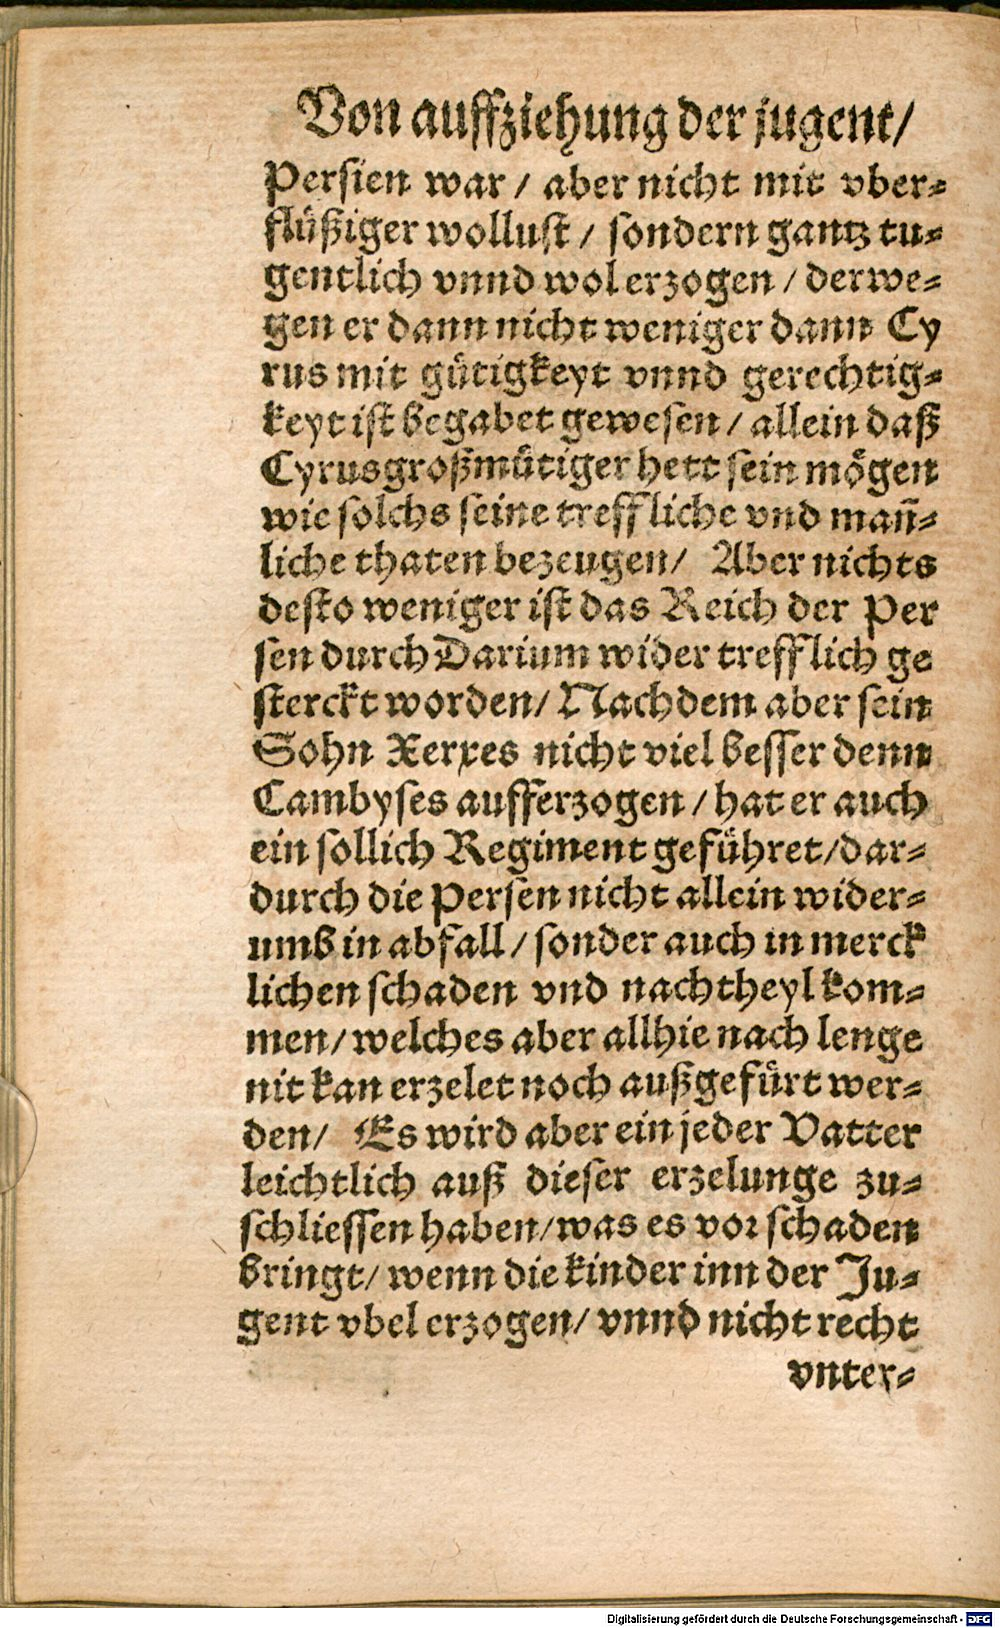 Von auffziehung der jugent/
Persien war / aber nicht mit vber⸗
flüßiger wollust / sondern gantz tu⸗
gentlich vnnd wol erzogen / derwe⸗
gen er dann nicht weniger dann Cy
rus mit gütigkeyt vnnd gerechtig⸗
keyt ist begabet gewesen / allein daß
Cyrus großmütiger hett sein mögen
wie solchs seine treffliche vnd mañ⸗
liche thaten bezeugen/ Aber nichts
desto weniger ist das Reich der Per
sen durch Darium wider trefflich ge
sterckt worden/ Nachdem aber sein
Sohn Xerxes nicht viel besser denn
Cambyses aufferzogen / hat er auch
ein sollich Regiment geführet/dar⸗
durch die Persen nicht allein wider⸗
umb in abfall / sonder auch in merck
lichen schaden vnd nachtheyl kom⸗
men/ welches aber allhie nach lenge
nit kan erzelet noch außgefürt wer⸗
den/ Es wird aber ein jeder Vatter
leichtlich auß dieser erzelunge zu⸗
schliessen haben/was es vor schaden
bringt/ wenn die kinder inn der Ju⸗
gent vbel erzogen/ vnnd nicht recht
vnter⸗
Digitalisierung gefördert durch die Deutsche Forschungsgemeinschaft - DFG